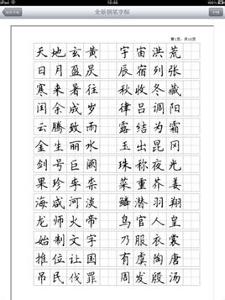 iPad
天地玄黄 宇宙洪荒
日月盈昃 辰宿列张
寒来暑往 秋收冬藏
闰余成岁 律吕调阳
云腾致雨 露结为霜
金生丽水 玉出昆冈
剑号巨阙 珠称夜光
果珍李柰 菜重芥姜
海咸河淡 鳞潜羽翔
龙师火帝 鸟官人皇
始制文字 乃服衣裳
推位让国 有虞陶唐
吊民伐罪 周发殷汤